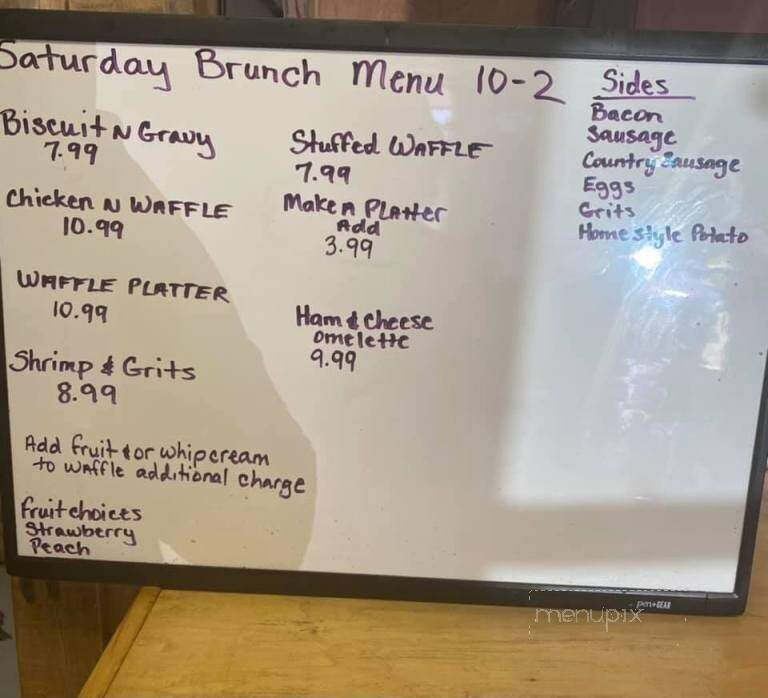 Saturday Brunch Menu 10-2
Biscuit N Gravy
7.99
Chicken N WAFFLE
10.99
WAFFLE PLATTER
10.99
Shrimp & Grits
8.99
Add fruit & or whipcream
to waffle additional charge
fruit choices
Strawberry
Peach
Stuffed WAFFLE
7.99
Make A Platter
Add
3.99
Ham & Cheese
Omelette
9.99
Sides
Bacon
Sausage
Country Sausage
Eggs
Grits
Home style Potato
pen+GEAR
menupix